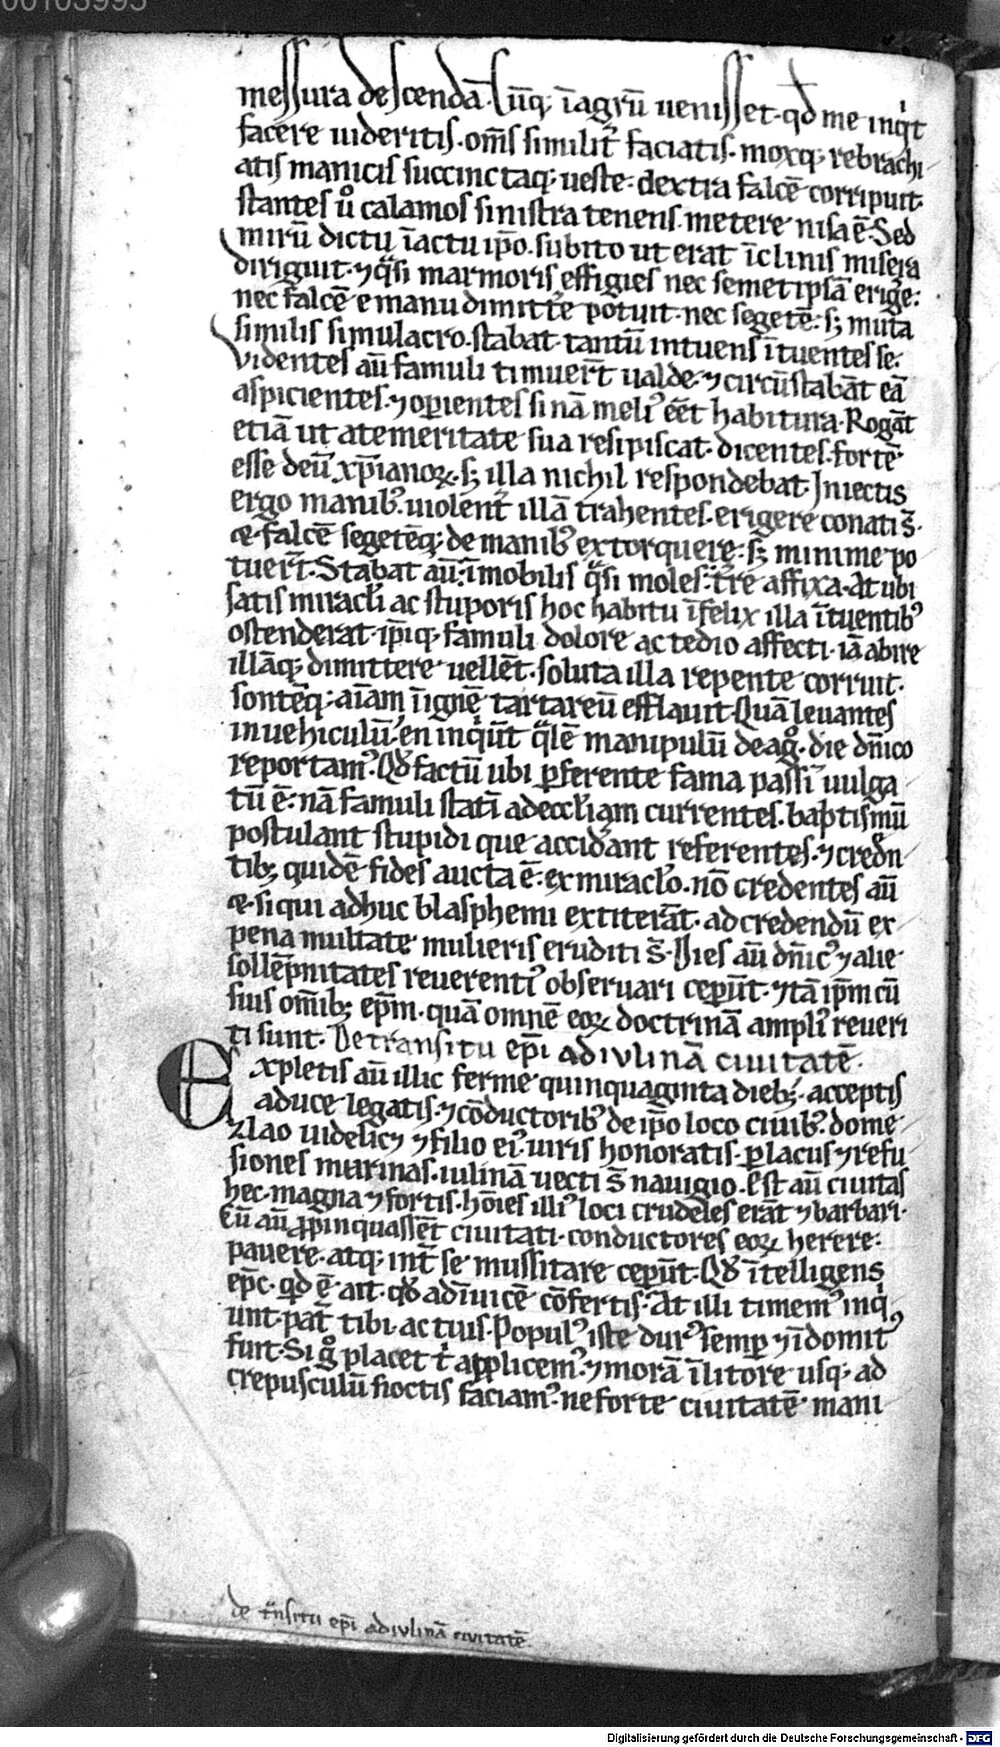 00103995
messura descendā. Cūq; īagrū uenisset. qd me inqͥt
facere uideritis. oms similit̄ faciatis. moxq; rebrachi
atis manicis succinctaq; ueste. dextra falcē corripuit.
stantes ů calamos sinistra tenens. metere nisa ē. Sed
mirū dictu īactu ip̄o. subito ut erat īclinis misera
diriguit. ⁊ qͣsi marmoris effigies nec semetipsā erige:
nec falcē e manu dimitte potuit. nec segetē. sꝫ muta
similis simulacro. stabat. tantū intuens ītuentes se.
Videntes aū famuli timuer̄t ualde. ⁊ circūstabāt eā
aspicientes. ⁊ opientes si nā meliꝰ eēt habitura. Rogāt
etiā ut atemeritate sua resipiscat. dicentes. fortē
esse deū xp̄ianoꝝ. sꝫ illa nichil respondebat. Iniectis
ergo manibꝰ. uiolent̄ illā trahentes. erigere conati s̄.
ę. falcē segetēq; de manibꝰ extorquere. sꝫ minime po
tuer̄t. Stabat aū. īmobilis qͣsi moles. t̄re affixa. At ubi
satis miracl̄i ac stuporis hoc habitu īfelix illa ītuentibꝰ
ostenderat. ip̄iq; famuli dolore ac tedio affecti. iā abire
illāq; dimittere uellēt. soluta illa repente corruit.
sontēq; aīam īignē tartareū efflauit. Quā leuantes
in uehiculū. en inqūt qͣlē manipulū de agͦ. die dn̄ico
reportamꝰ. Qd factū ubi ꝑferente fama passī uulga
tū ē. nā famuli statī adeccl̄iam currentes. baptismū
postulant stupidi que accidant referentes. ⁊ credn
tibꝫ quidē fides aucta ē. ex miraclo. nō credentes aū
ę. siqui adhuc blasphemi extiterāt. ad credendū ex
pena multate mulieris eruditi s̄. Dies aū dn̄icꝰ ⁊ alie
sollēpnitates reuerentiꝰ obseruari cepūt. ⁊ tā ip̄m cū
suis om̄ibꝫ ep̄m. quā omnē eoꝝ doctrinā ampliꝰ reueri
ti sunt. De transitu ep̄i adiulinā ciuitatē.
Expletis aū illic ferme quinquaginta diebꝫ. acceptis
aduce legatis. ⁊ cōductoribꝰ de ip̄o loco ciuibꝰ. dome
zlao uidelicꝫ ⁊ filio eiꝰ. uiris honoratis. ꝑ lacus ⁊ refu
siones marinas. iulinā uecti s̄ nauigio. Est aū ciuitas
hec. magna ⁊ fortis. hoīes illiꝰ loci crudeles erāt ⁊ barbari.
Cū aū ꝓpinquassēt ciuitati. conductores eoꝝ herere:
pauere. atq; int̄ se mussitare cepūt. Qd ītelligens
ep̄c. qd ē. ait. qd adīuicē cōfertis. At illi timemꝰ inqͥ
unt. pat̄ tibi. ac tuis. Populꝰ iste durꝰ semꝑ ⁊ īdomitꝰ
fuit. Si gͦ placet tͥ applicemꝰ. ⁊ morā īlitore usq; ad
crepusculū noctis faciamꝰ. ne forte ciuitatē mani
de tͣnsitu ep̄i adiulinā ciuitatē.
Digitalisierung gefördert durch die Deutsche Forschungsgemeinschaft - DFG